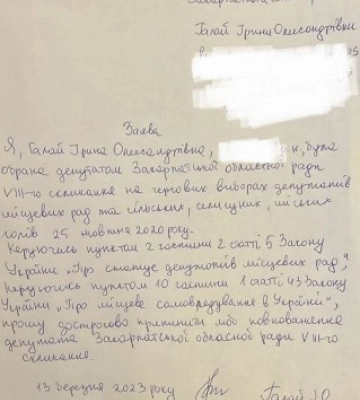 Галай Ірини Олександрівни
Заява
Я, Галай Ірина Олександрівна, р.н., була
обрана депутатом Закарпатської обласної ради
VIII-го скликання на чергових виборах депутатів
місцевих рад та сільських, селищних, міських
голів 25 жовтня 2020 року.
Керуючись пунктом 2 частини 2 статті 5 Закону
України „Про статус депутатів місцевих рад",
керуючись пунктом 10 частини 1 статті 43 Закону
України „Про місцеве самоврядування в Україні",
прошу достроково припинити мої повноваження
депутата Закарпатської обласної ради VIII-го
скликання.
13 березня 2023 року Галай І.О.